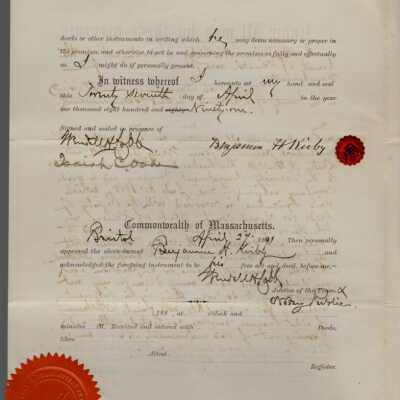 deeds or other instruments in writing which he may deem necessary or proper in
the premises, and otherwise to act in and concerning the premises as fully and effectually
as I might do if personally present.
In witness whereof I hereunto set my hand and seal
this Twenty Seventh day of April in the year
one thousand eight hundred and eighty Ninety one.
Signed and sealed in presence of
Wendell H. Cobb
Benjamin H Kirby
Isaiah C.
Commonwealth of Massachusetts.
Bristol April 27 1891 Then personally
appeared the above-named Benjamin H. Kirby and
acknowledged the foregoing instrument to be his free act and deed, before me,
Wendell H. Cobb
Justice of the Peace &
Notary Public
188 , at o'clock and
minutes M. Received and entered with Deeds,
libro
Attest.
Register.